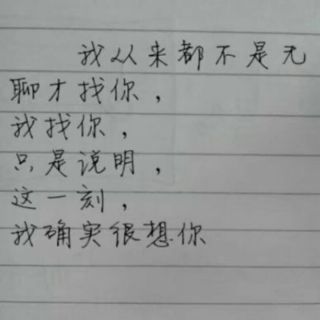 我从来都不是无
聊才找你，
我找你，
只是说明，
这一刻，
我确实很想你